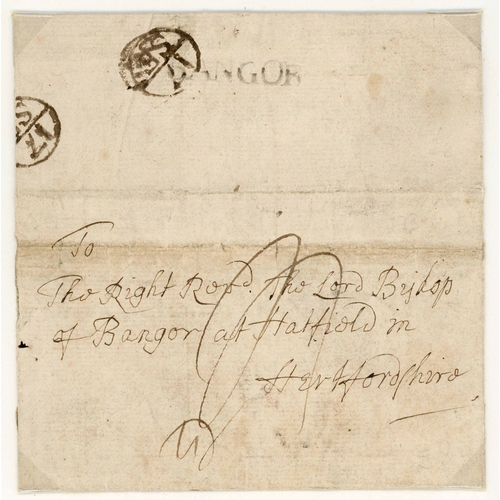 BANGOR
To
The Right Revd. the Lord Bishop
of Bangor at Hatfield in
Hertfordshire